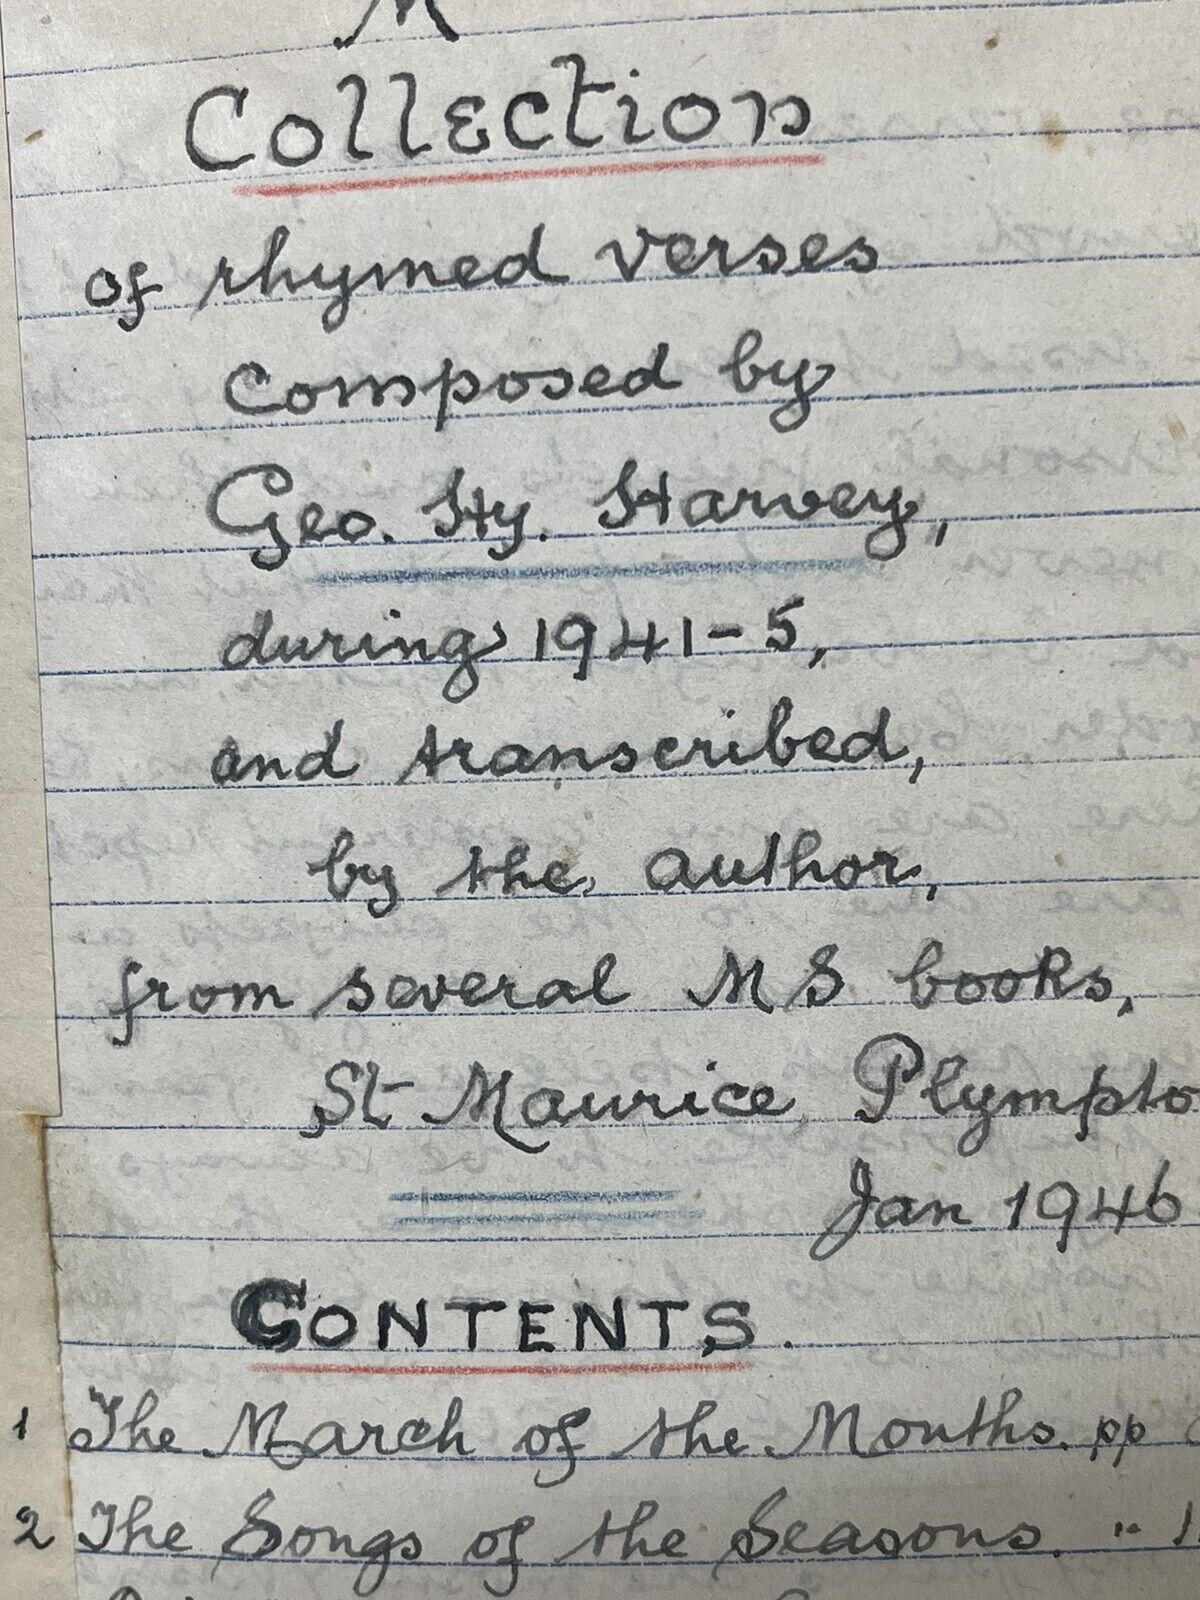 Collection
of rhymed verses
composed by
Geo. Hy. Harvey,
during 1941-5,
and transcribed,
by the author,
from several MS books,
St Maurice Plympto
Jan 1946
CONTENTS.
1 The March of the Months. pp
2 The Songs of the Seasons. " 1